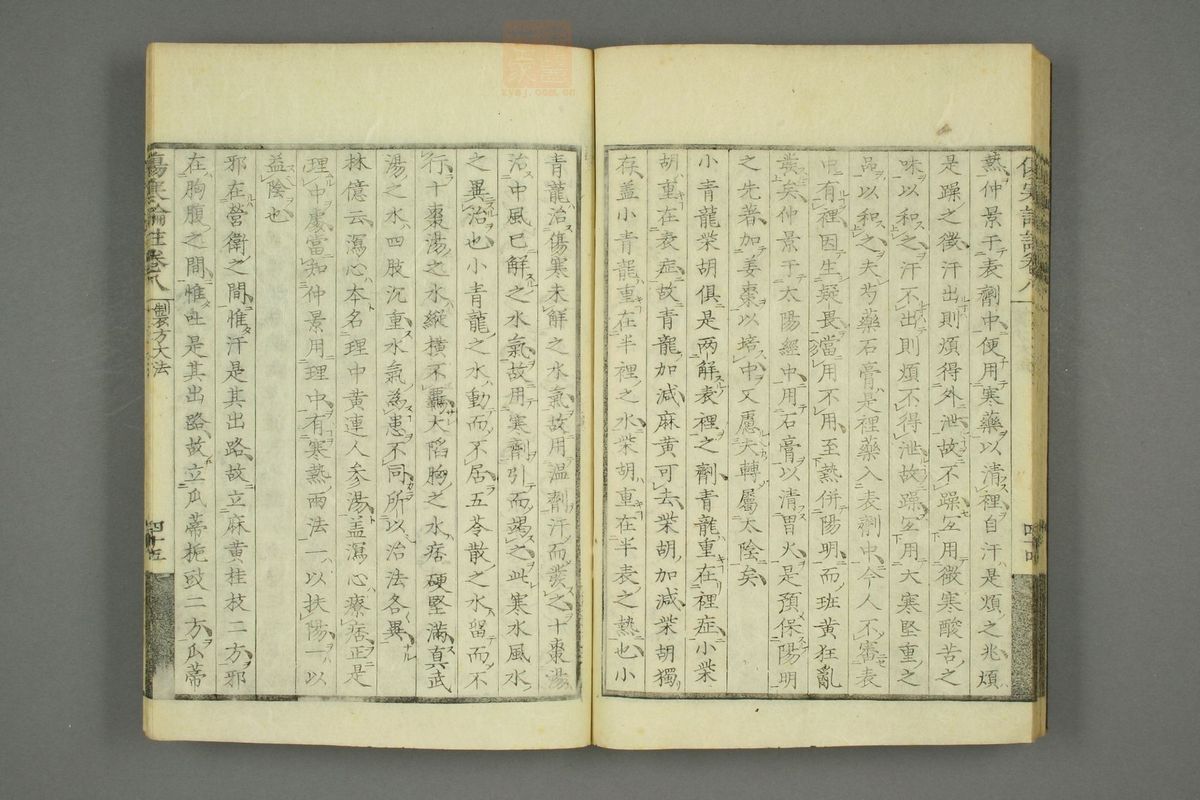 熱仲景于表劑中便用寒藥以清裡自汗是煩之兆煩
是躁之徵汗出則煩得外泄故不躁宜用微寒酸苦之
味以和之汗不出則煩不得泄故躁宜用大寒堅重之
品以和之夫芍藥石膏是裡藥入表劑中今人不審表
中有裡因生疑畏當用不用至熱併陽明而班黃狂亂
發矣仲景于太陽經中用石膏以清胃火是預保陽明
之先著加姜棗以培中又慮夫轉屬太陰矣
小青龍柴胡俱是兩解表裡之劑青龍重在裡症小柴
胡重在表症故青龍加減麻黃可去柴胡加減柴胡獨
存蓋小青龍重在半裡之水柴胡重在半表之熱也小
青龍治傷寒未解之水氣故用溫劑汗而發之十棗湯
治中風已解之水氣故用寒劑引而竭之此寒水風水
之異治也小青龍之水動而不居五苓散之水留而不
行十棗湯之水縱橫不羈大陷胸之水痞硬堅滿真武
湯之水四肢沉重水氣為患不同所以治法各異
林億云瀉心本名理中黃連人參湯盖瀉心療痞正是
理中處當知仲景用理中有寒熱兩法一以扶陽一以
益陰也
邪在營衛之間惟汗是其出路故立麻黃桂枝二方邪
在胸腹之間惟吐是其出路故立瓜蒂梔豉二方瓜蒂
傷寒論註卷八
製方大法
四十五
zysj.com.cn